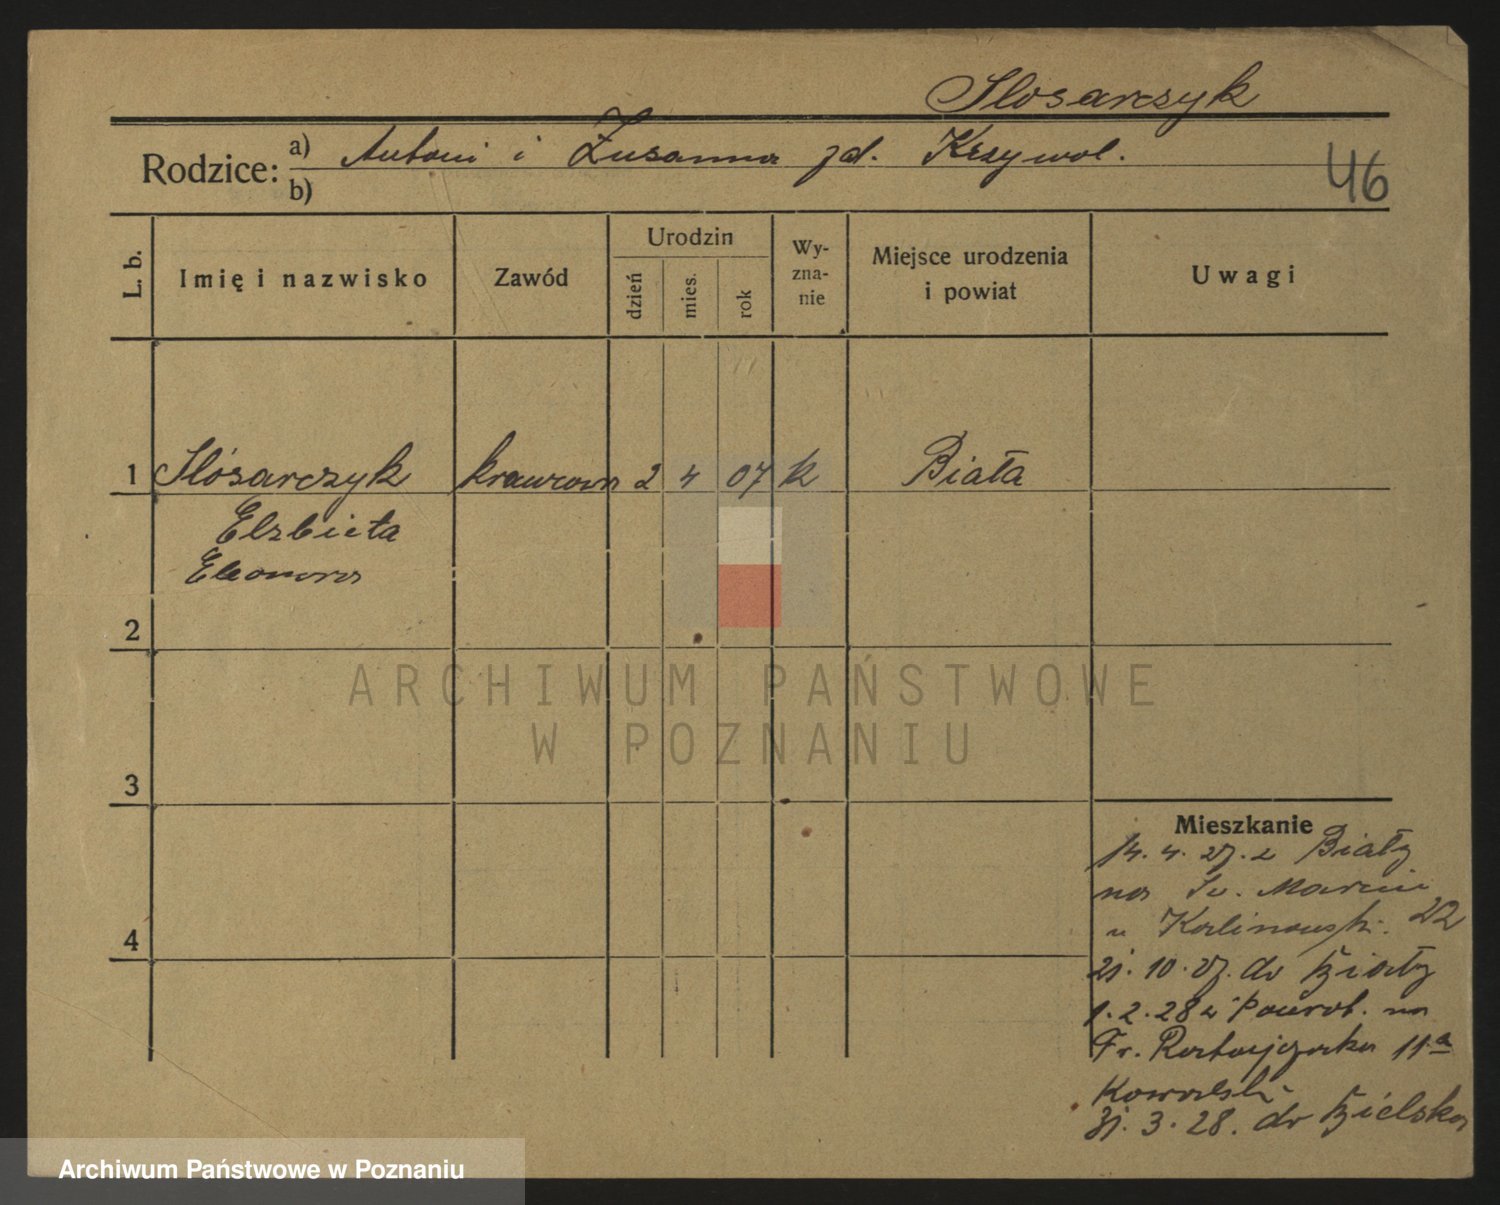 Slosarczyk
Rodzice: a) Antoni i Zusanna zd. Krzywol.
b)
46
L. b.
Imię i nazwisko
Zawód
Urodzin
dzień
mies.
rok
Wy-
zna-
nie
Miejsce urodzenia
i powiat
Uwagi
1 Slósarczyk krawcowa 2 4 07 k Biała
Elzbieta
Eleonora
2
3
4
Mieszkanie
14. 4. 27. z Biały
na Św. Marcin
u Kalinowski. 22
21. 10. 27. do Biały
1. 2. 28 z powrot. na
Fr. Ratajczaka 11a
Kowalski
31. 3. 28. do Bielska
ARCHIWUM PAŃSTWOWE
W POZNANIU
Archiwum Państwowe w Poznaniu